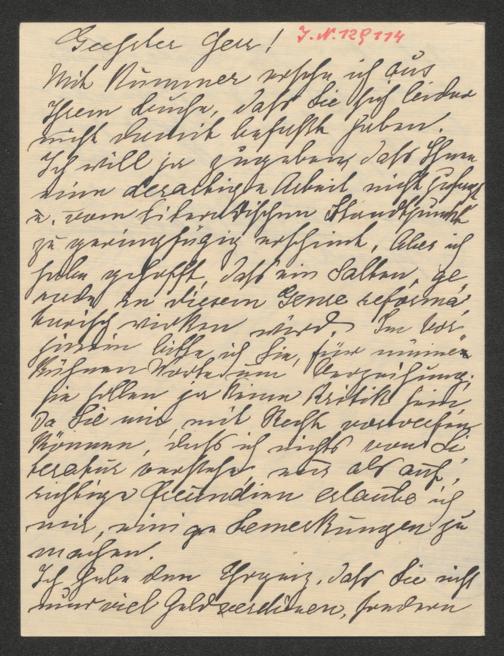 Geehrter Herr! I.N. 129114
Mit Kummer ersehe ich aus
Ihrem Buche, daß Sie sich leider
nicht damit befaßt haben.
Ich will ja zugeben, daß Ihnen
eine derartige Arbeit nicht zusagt
u. vom literarischen Standpunkt
zu geringfügig erscheint. Aber ich
habe gehofft, daß ein Salten, ge
rade in diesem Genre reforma-
torisch wirken wird. Im vor-
hinein bitte ich Sie, für meine
kühnen Worte um Verzeihung.
Sie sollen ja keine Kritik sein
da Sie mir mit Recht vorwerfen
können, daß ich nichts von Li
teratur verstehe, nur als auf-
richtige Freundin erlaube ich
mir, einige Bemerkungen zu
machen.
Ich habe den Ehrgeiz, daß Sie nicht
nur viel Geld verdienen, sondern